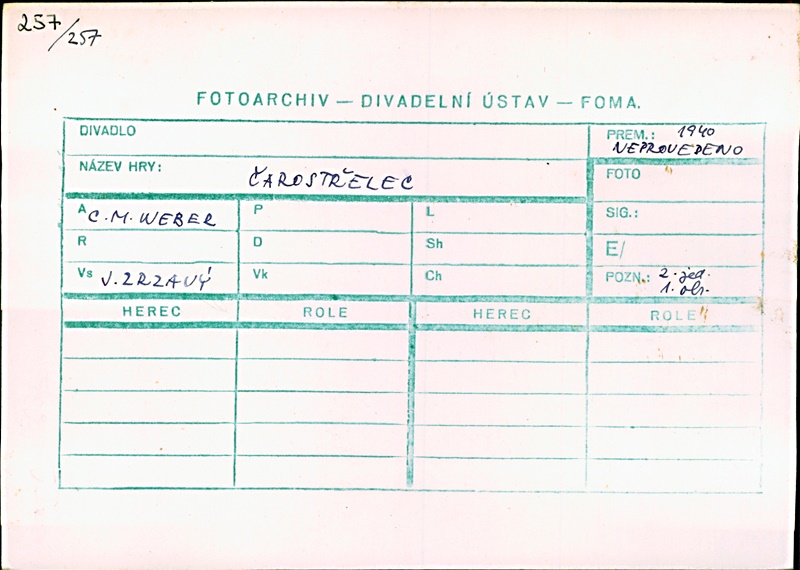 257/257
FOTOARCHIV — DIVADELNÍ ÚSTAV — FOMA.
DIVADLO
PREM.: 1940
NEPROVEDENO
NÁZEV HRY: ČAROSTŘELEC
FOTO
A C. M. WEBER P L SIG.:
R D Sh E/
Vs J. ZRZAVÝ Vk Ch POZN.: 2. jed.
1. obr.
HEREC ROLE HEREC ROLE